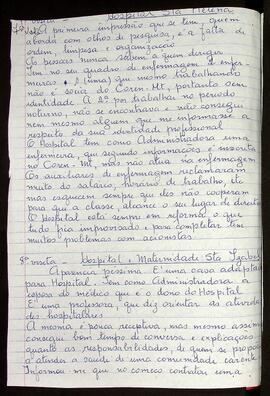 Hospital Sta Helena
primeira impressão que se tem, quem
aborda com olhos de pesquisa, é a falta de
ordem, limpeza e organização
As pessoas nunca sabem a quem dirigir
Tem no seu quadro de enfermagem 2 enfer-
meiras. 1 (uma) que mesmo trabalhando
não é sócia do Coren-Mt, portanto sem
identidade. A 2ª por trabalhar no período
noturno, não se encontrava e não consegui
nem mesmo alguem que me informasse a
respeito da sua identidade profissional
O Hospital tem como Administradora uma
enfermeira, que segundo informações é inscrita
no Coren-Mt, mas não atua na enfermagem
Os auxiliares de enfermagem reclamaram
muito do salário, horário de trabalho, etc
mas esquecem sempre que eles não cooperam
para que a classe alcance o seu lugar de direito
O Hospital está sempre em reforma, o que
tudo fica improvisado e para completar tem
muitos problemas com acionistas
5ª visita - Hospital e Maternidade Sta Izabel
Aparência péssima. É uma casa adaptada
para Hospital. Tem como Administradora a
esposa do médico que é o dono do Hospital
É uma professora, que diz orientar as atividades
hospitalares
A mesma é pouca receptiva, mas mesmo assim
consegui bom tempo de conversa e explicações
quanto as responsabilidades, de quem se propoe
a atender a saúde de uma comunidade carente
Informou me que no começo contratou uma